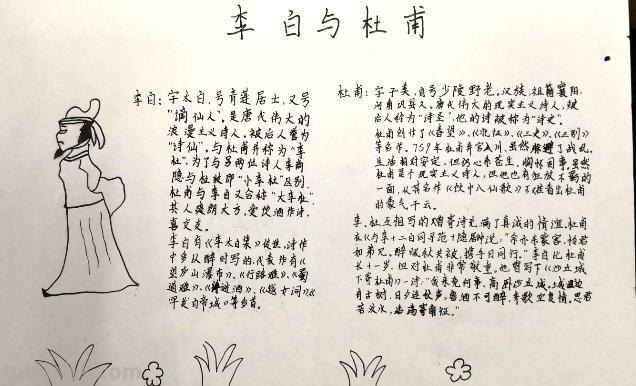 李白与杜甫
李白：字太白，号青莲居士，又号
“谪仙人”，是唐代伟大的
浪漫主义诗人，被后人誉为
“诗仙”，与杜甫并称为“李
杜”，为了与另两位诗人李商
隐与杜牧即“小李杜”区别，
杜甫与李白又合称“大李杜”，
其人爽朗大方，爱饮酒作诗，
喜交友。
李白有《李太白集》传世，诗作
中多以醉时写的，代表作有《
望庐山瀑布》、《行路难》、《蜀
道难》、《将进酒》、《越女词》、《
早发白帝城》等多首。
杜甫：字子美，自号少陵野老。汉族，祖籍襄阳，
河南巩县人。唐代伟大的现实主义诗人，被
后人称为“诗圣”，他的诗被称为“诗史”。
杜甫创作了《春望》、《北征》、《三吏》、《三别》
等名作。759年杜甫弃官入川，虽然躲避了战乱，
生活相对安定，但仍心系苍生，胸怀国事。虽然
杜甫是个现实主义诗人，但他也有狂放不羁的
一面，从其名作《饮中八仙歌》不难看出杜甫
的豪气干云。
李、杜互相写的赠寄诗充满了真诚的情谊，杜甫
在《与李十二白同寻范十隐居》中说：“余亦东蒙客，怜君
如弟兄。醉眠秋共被，携手日同行。”李白比杜甫
长十一岁，但对杜甫非常敬重。他曾写下《沙丘城
下寄杜甫》一诗：“我来竟何事，高卧沙丘城。城边
有古树，日夕连秋声。鲁酒不可醉，齐歌空复情。思君
若汶水，浩荡寄南征。”